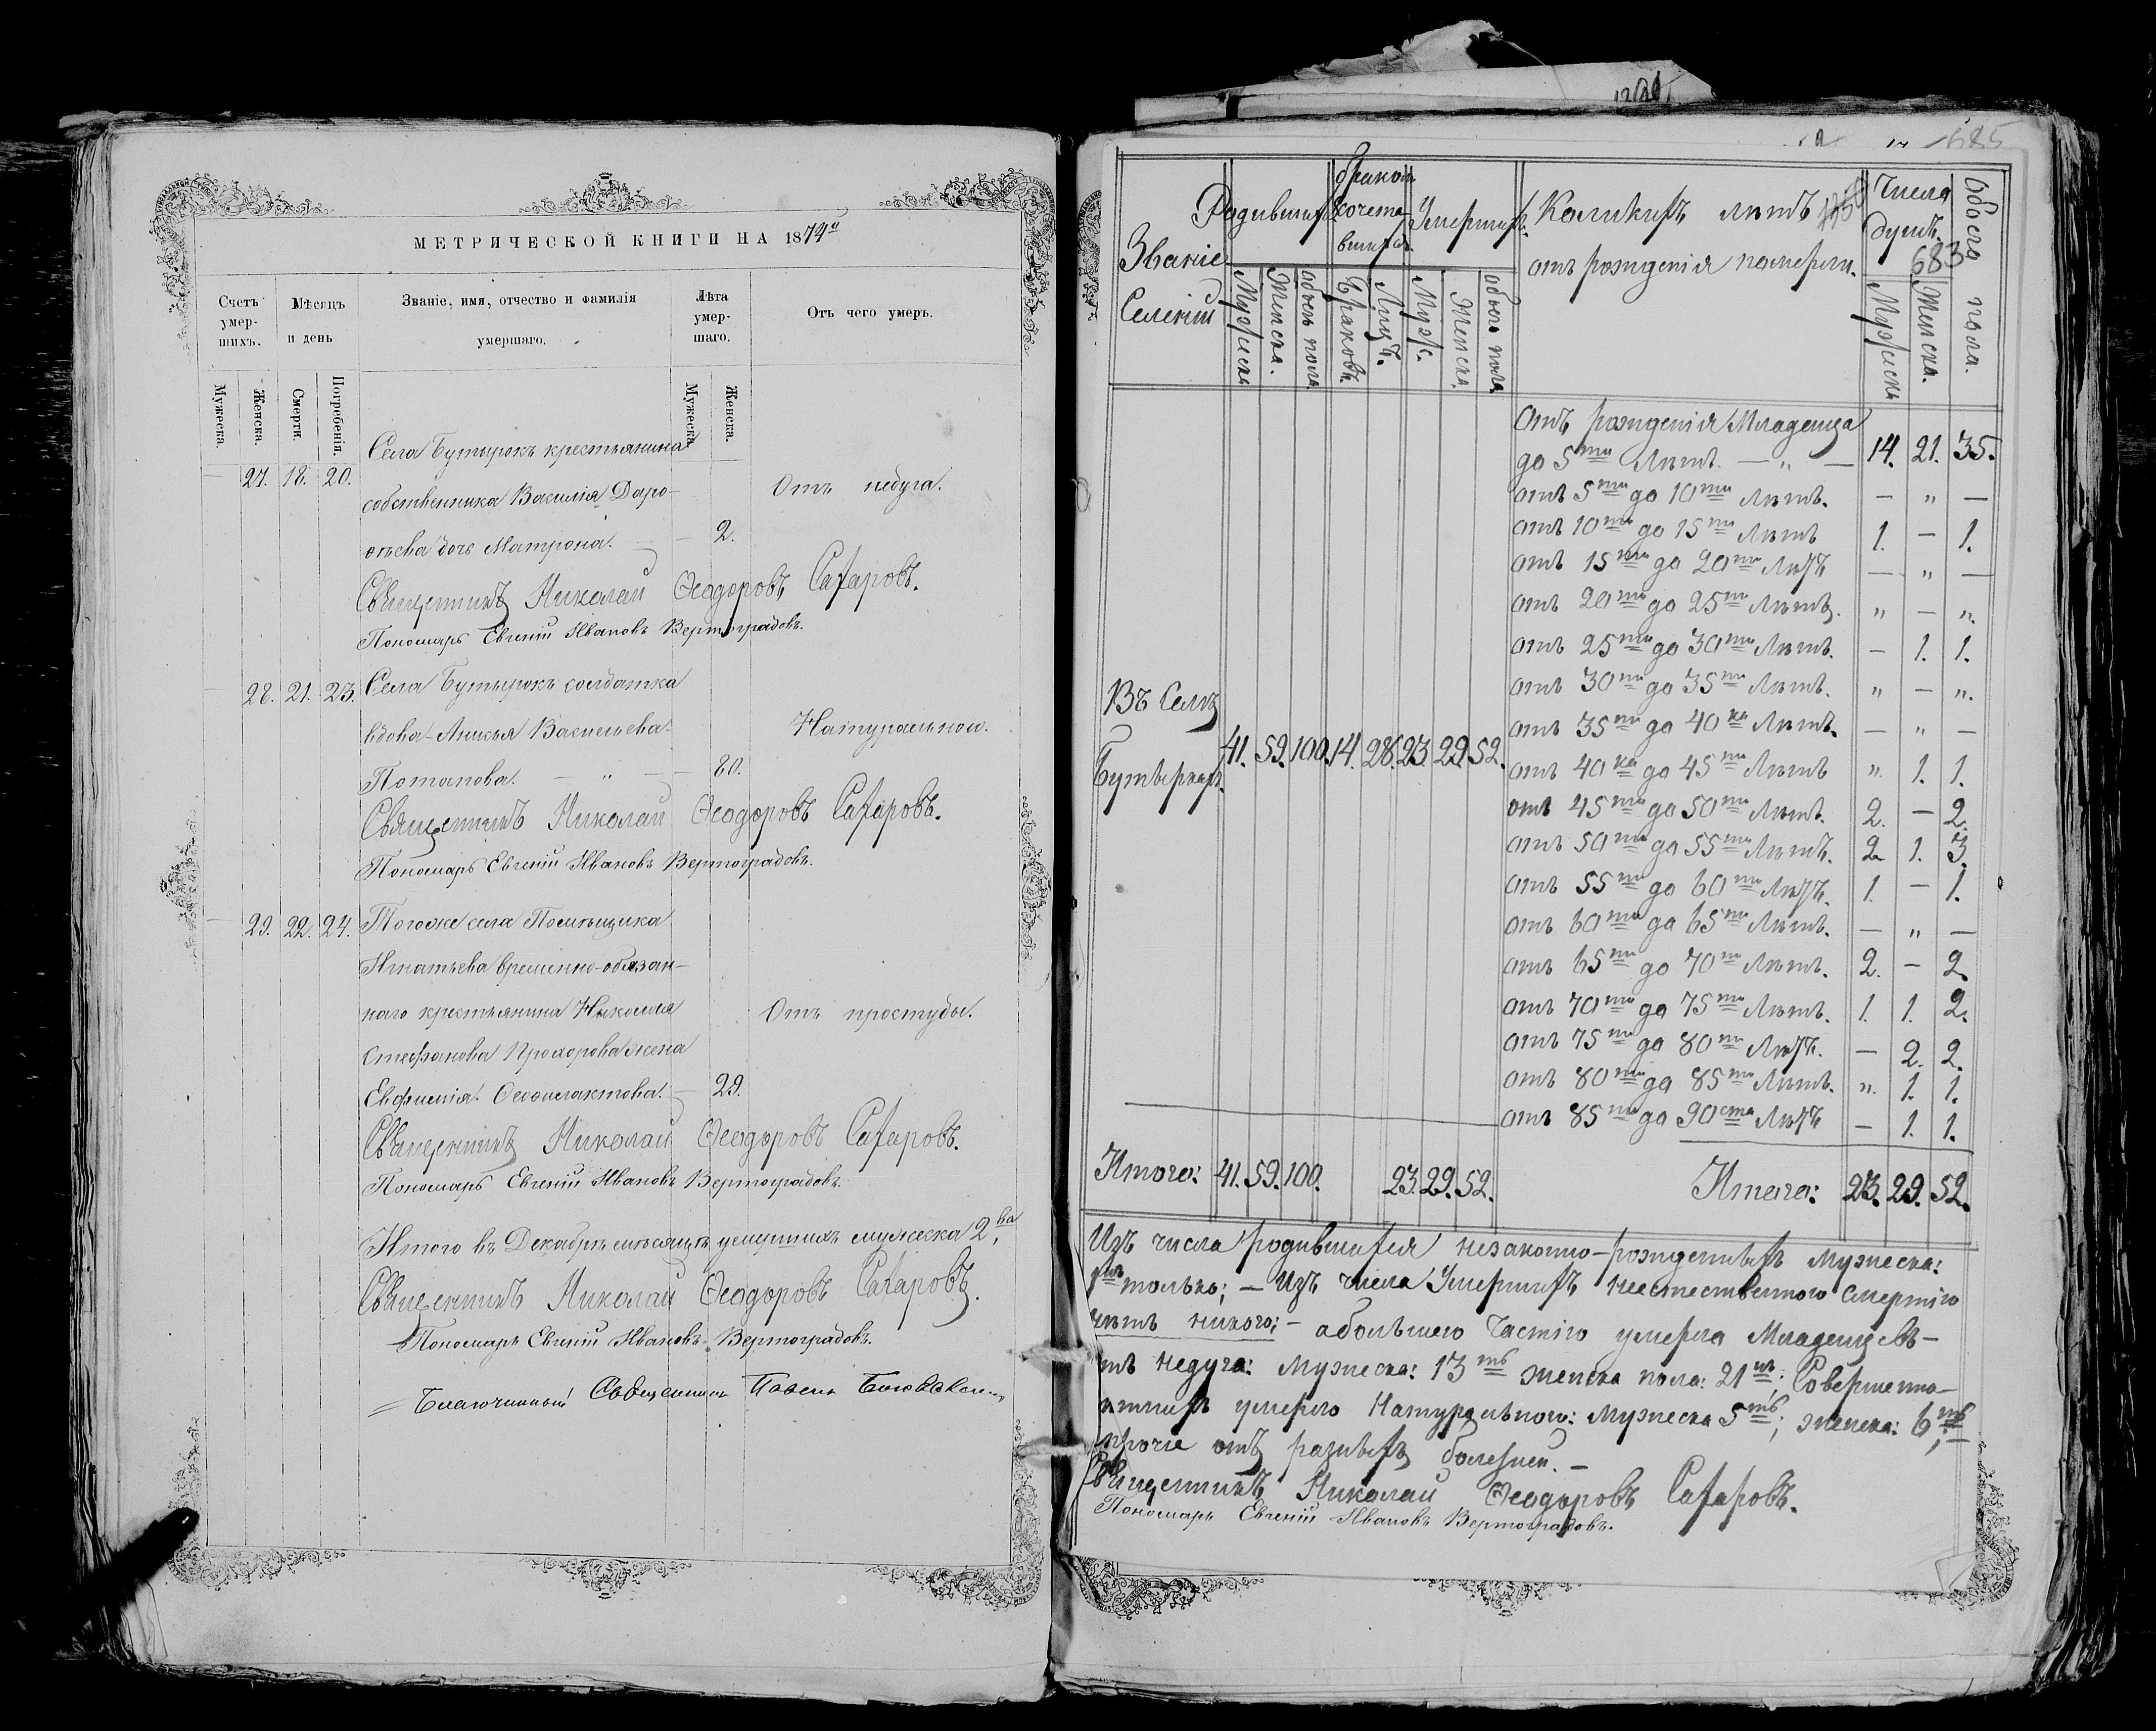 МЕТРИЧЕСКОЙ КНИГИ НА 1874й
Счетъ умер-шихъ.
Мѣсяцъ и день
Званіе, имя, отчество и фамилія умершаго.
Лѣта умер-шаго.
Отъ чего умеръ.
Мужеска.
Женска.
Смерти.
Погребенія.
Мужеска.
Женска.
Села Бутырокъ крестьянина
— 27. 18. 20.
собственника Василія Даро- Отъ недуга.
ѳѣева дочь Матрона. — 2.
Священникъ Николай Ѳеодоровъ Сахаровъ.
Пономарь Евгеній Ивановъ Вертоградовъ.
— 28. 21. 23. Села Бутырокъ солдатка
вдова Анисья Васильева Натуральною.
Потапова. — „ — 80.
Священникъ Николай Ѳеодоровъ Сахаровъ.
Пономарь Евгеній Ивановъ Вертоградовъ.
— 29. 22. 24. Тогоже села Помѣщика
Игнатьева временно-обязан-
наго крестьянина Николая Отъ простуды.
Стефанова Прохорова жена
Евфимія Ѳеофилактова. — 29.
Священникъ Николай Ѳеодоровъ Сахаровъ.
Пономарь Евгеній Ивановъ Вертоградовъ.
Итого въ Декабрѣ мѣсяцѣ умершихъ мужеска 2ва,
Священникъ Николай Ѳеодоровъ Сахаровъ.
Пономарь Евгеній Ивановъ Вертоградовъ.
Благочинный Священникъ Павелъ
685
Званіе Селеній
Родившихся
бракомъ сочета-вшихся.
Умершихъ.
Каликихъ лѣтъ отъ рожденія померли.
Числа душъ.
683
Обоега пола.
Мужеск.
Женска.
Обоего пола.
Браковъ.
Лицъ.
Муж.
Женска.
Обоего пола.
Мужеск.
Женска.
Отъ рожденія Младенца
до 5ти Лѣтъ. — „ — 14. 21. 35.
отъ 5ти до 10ти Лѣтъ. — „ —
отъ 10ти до 15ти Лѣтъ 1. — 1.
отъ 15ти до 20ти Лѣтъ — „ —
отъ 20ти до 25ти Лѣтъ. „ — „
отъ 25ти до 30ти Лѣтъ. — 1. 1.
отъ 30ти до 35ти Лѣтъ. „ — „
отъ 35ти до 40ка Лѣтъ. — „ —
отъ 40ка до 45ти Лѣтъ „ 1. 1.
отъ 45ти до 50ти Лѣтъ. 2. — 2.
отъ 50ти до 55ти Лѣтъ. 2. 1. 3.
отъ 55ти до 60ти Лѣтъ. 1. — 1.
отъ 60ти до 65ти Лѣтъ. — „ —
отъ 65ти до 70ти Лѣтъ. 2. — 2.
отъ 70ти до 75ти Лѣтъ. 1. 1. 2.
отъ 75ти до 80ти Лѣтъ. — 2. 2.
отъ 80ти до 85ти Лѣтъ. „ 1. 1.
отъ 85ти до 90ста Лѣтъ — 1. 1.
Въ Селѣ
Бутыркахъ. 41. 59. 100. 14. 28. 23. 29. 52.
Итого: 41. 59. 100. 23. 29. 52. Итага: 23. 29. 52.
Изъ числа родившихся незаконно-рожденныхъ Мужеска:
1нъ только; — Изъ числа Умершихъ неестественного смертію
нѣтъ никого; — аболѣшего частію умерла Младенцевъ —
тъ недуга: Мужеска: 13ть женска пола: 21нъ; Совершенно-
ѣтнихъ умерло Натуральною: Мужеска 5ть; женска: 6ть,
прочіе отъ разныхъ болезней. —
Священникъ Николай Ѳеодоровъ Сахаровъ.
Пономарь Евгеній Ивановъ Вертоградовъ.